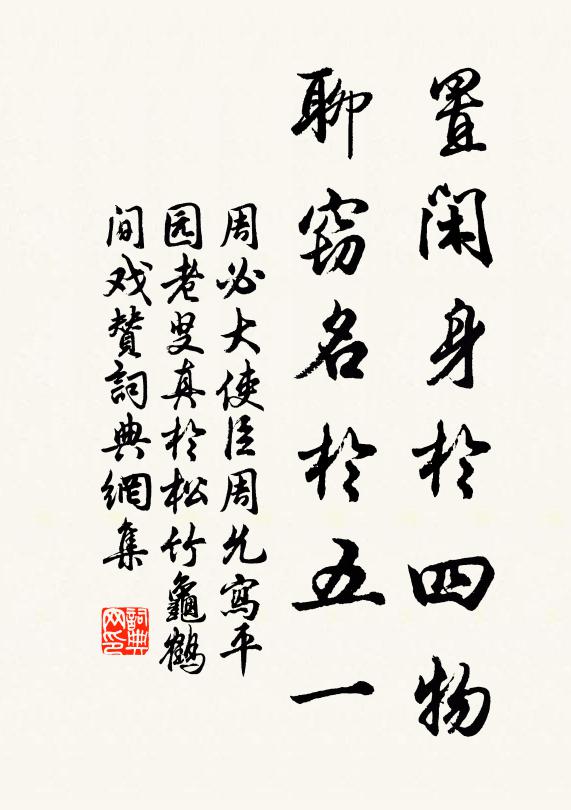 置閑身於四物
聊窃名於五一
周必大使臣周允寫平
园老叟真於松竹龜鶴
间戏贊詞典網集
詞典
网印